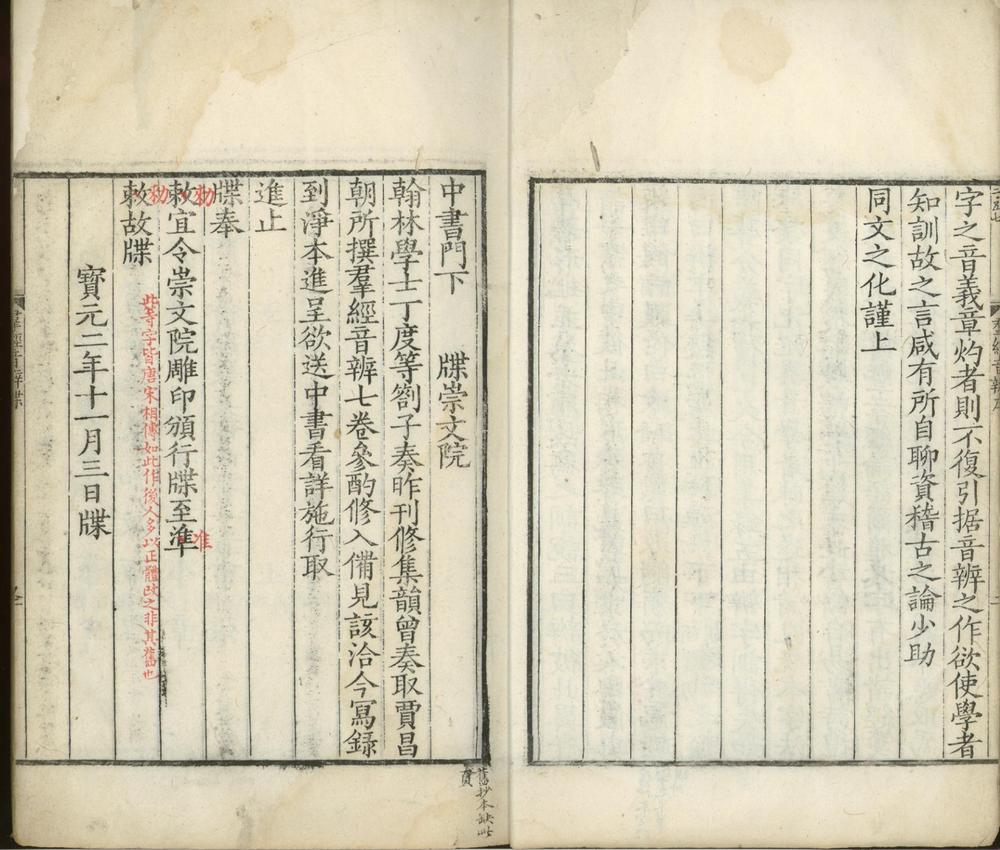 字之音義章灼者則不復引据音辨之作欲使學者
知訓故之言咸有所自聊資稽古之論少助
同文之化謹上
中書門下　　牒崇文院
翰林學士丁度等劄子奏昨刊修集韻曾奏取賈昌
朝所撰羣經音辨七卷參酌修入備見該洽今寫錄
到淨本進呈欲送中書看詳施行取
進止
牒奉
勑
敕宜令崇文院雕印頒行牒至準
准
勑
此等字皆唐宋相傳如此作後人多以正體改之非其舊也
敕故牒
寶元二年十一月三日牒
舊抄本缺此
頁
羣經音辨牒